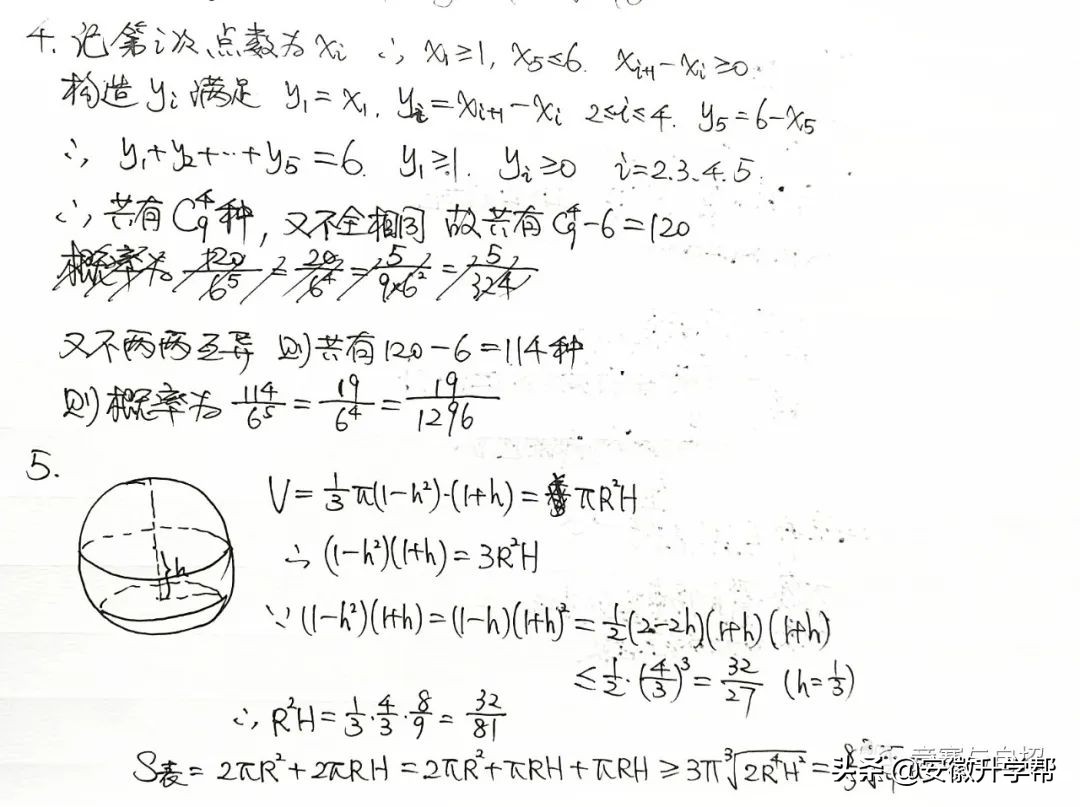 4. 记第i次点数为xᵢ ∴ x₁≥1, x₅≤6. xᵢ₊₁-xᵢ≥0.
构造yᵢ满足 y₁=x₁. yᵢ=xᵢ₊₁-xᵢ 2≤i≤4. y₅=6-x₅
∴ y₁+y₂+…+y₅=6. y₁≥1. yᵢ≥0 i=2.3.4.5.
∴ 共有C₉⁴种, 又不全相同 故共有C₉⁴-6=120
概率为 120/6⁵ = 20/6⁴ = 5/9×6² = 5/324
又不两两互异 则共有120-6=114种
则概率为 114/6⁵ = 19/6⁴ = 19/1296
5.
h
V=1/3π(1-h²)·(1+h)=πR²H
∴ (1-h²)(1+h)=3R²H
∵ (1-h²)(1+h)=(1-h)(1+h)²=1/2(2-2h)(1+h)(1+h)
≤1/2·(4/3)³=32/27 (h=1/3)
∴ R²H=1/3·4/3·8/9=32/81
S表=2πR²+2πRH=2πR²+πRH+πRH≥3π∛2R⁴H²=
竞赛与自招
头条@安徽升学帮